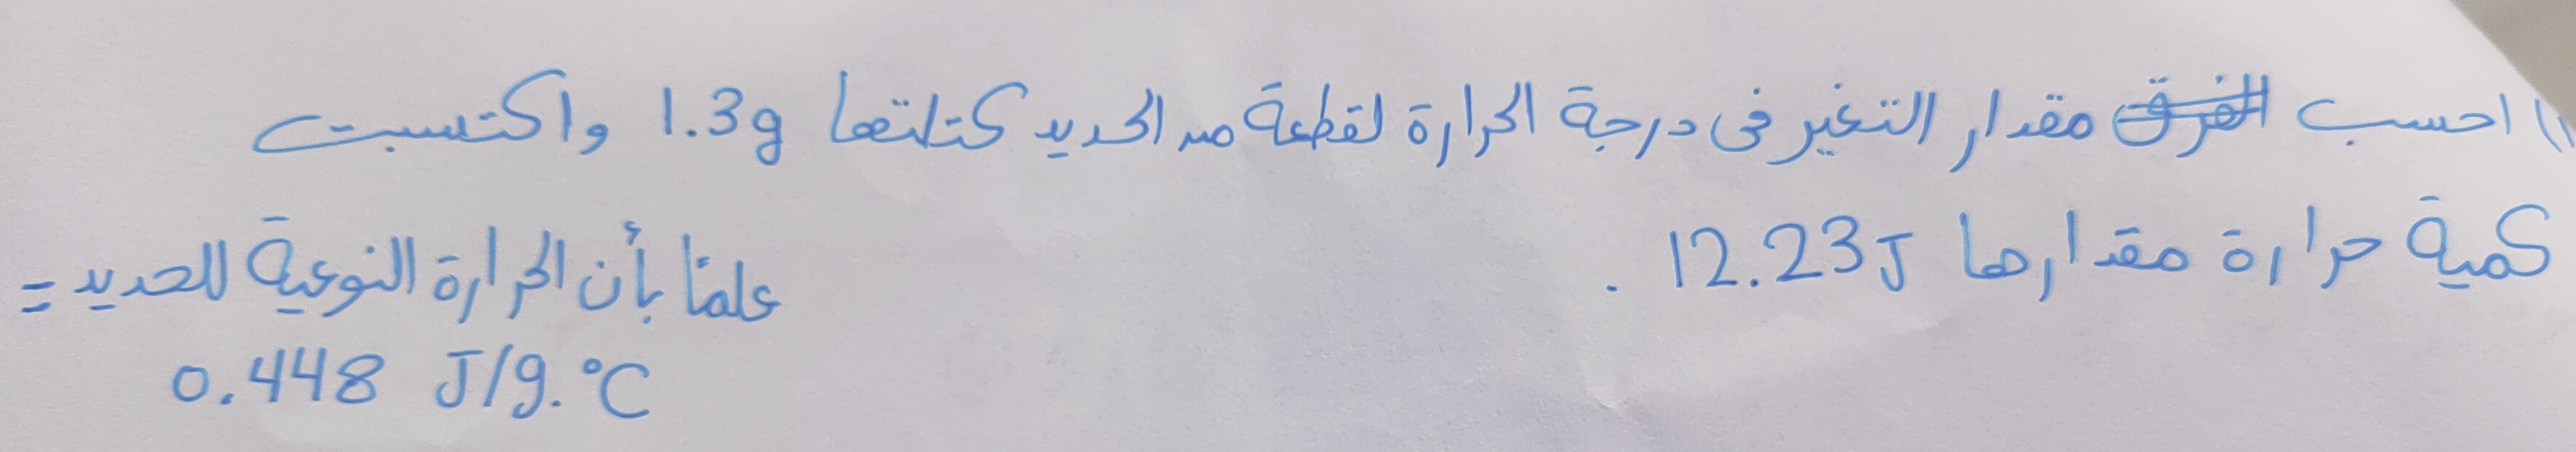 (1 احسب الفرق مقدار التغير فى درجة الحرارة لقطعة من الحديد كتلتها 1.3g واكتسبت
كمية حرارة مقدارها 12.23J .
علمًا بأن الحرارة النوعية للحديد =
0.448 J/g.°C